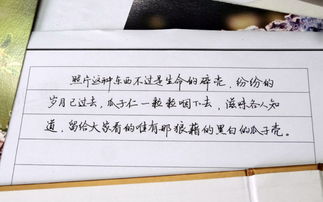 照片这种东西不过是生命的碎壳,纷纷的
岁月已过去,瓜子仁一粒粒咽下去,滋味各人知
道,留给大家看的唯有那狼藉的黑白的瓜子壳。